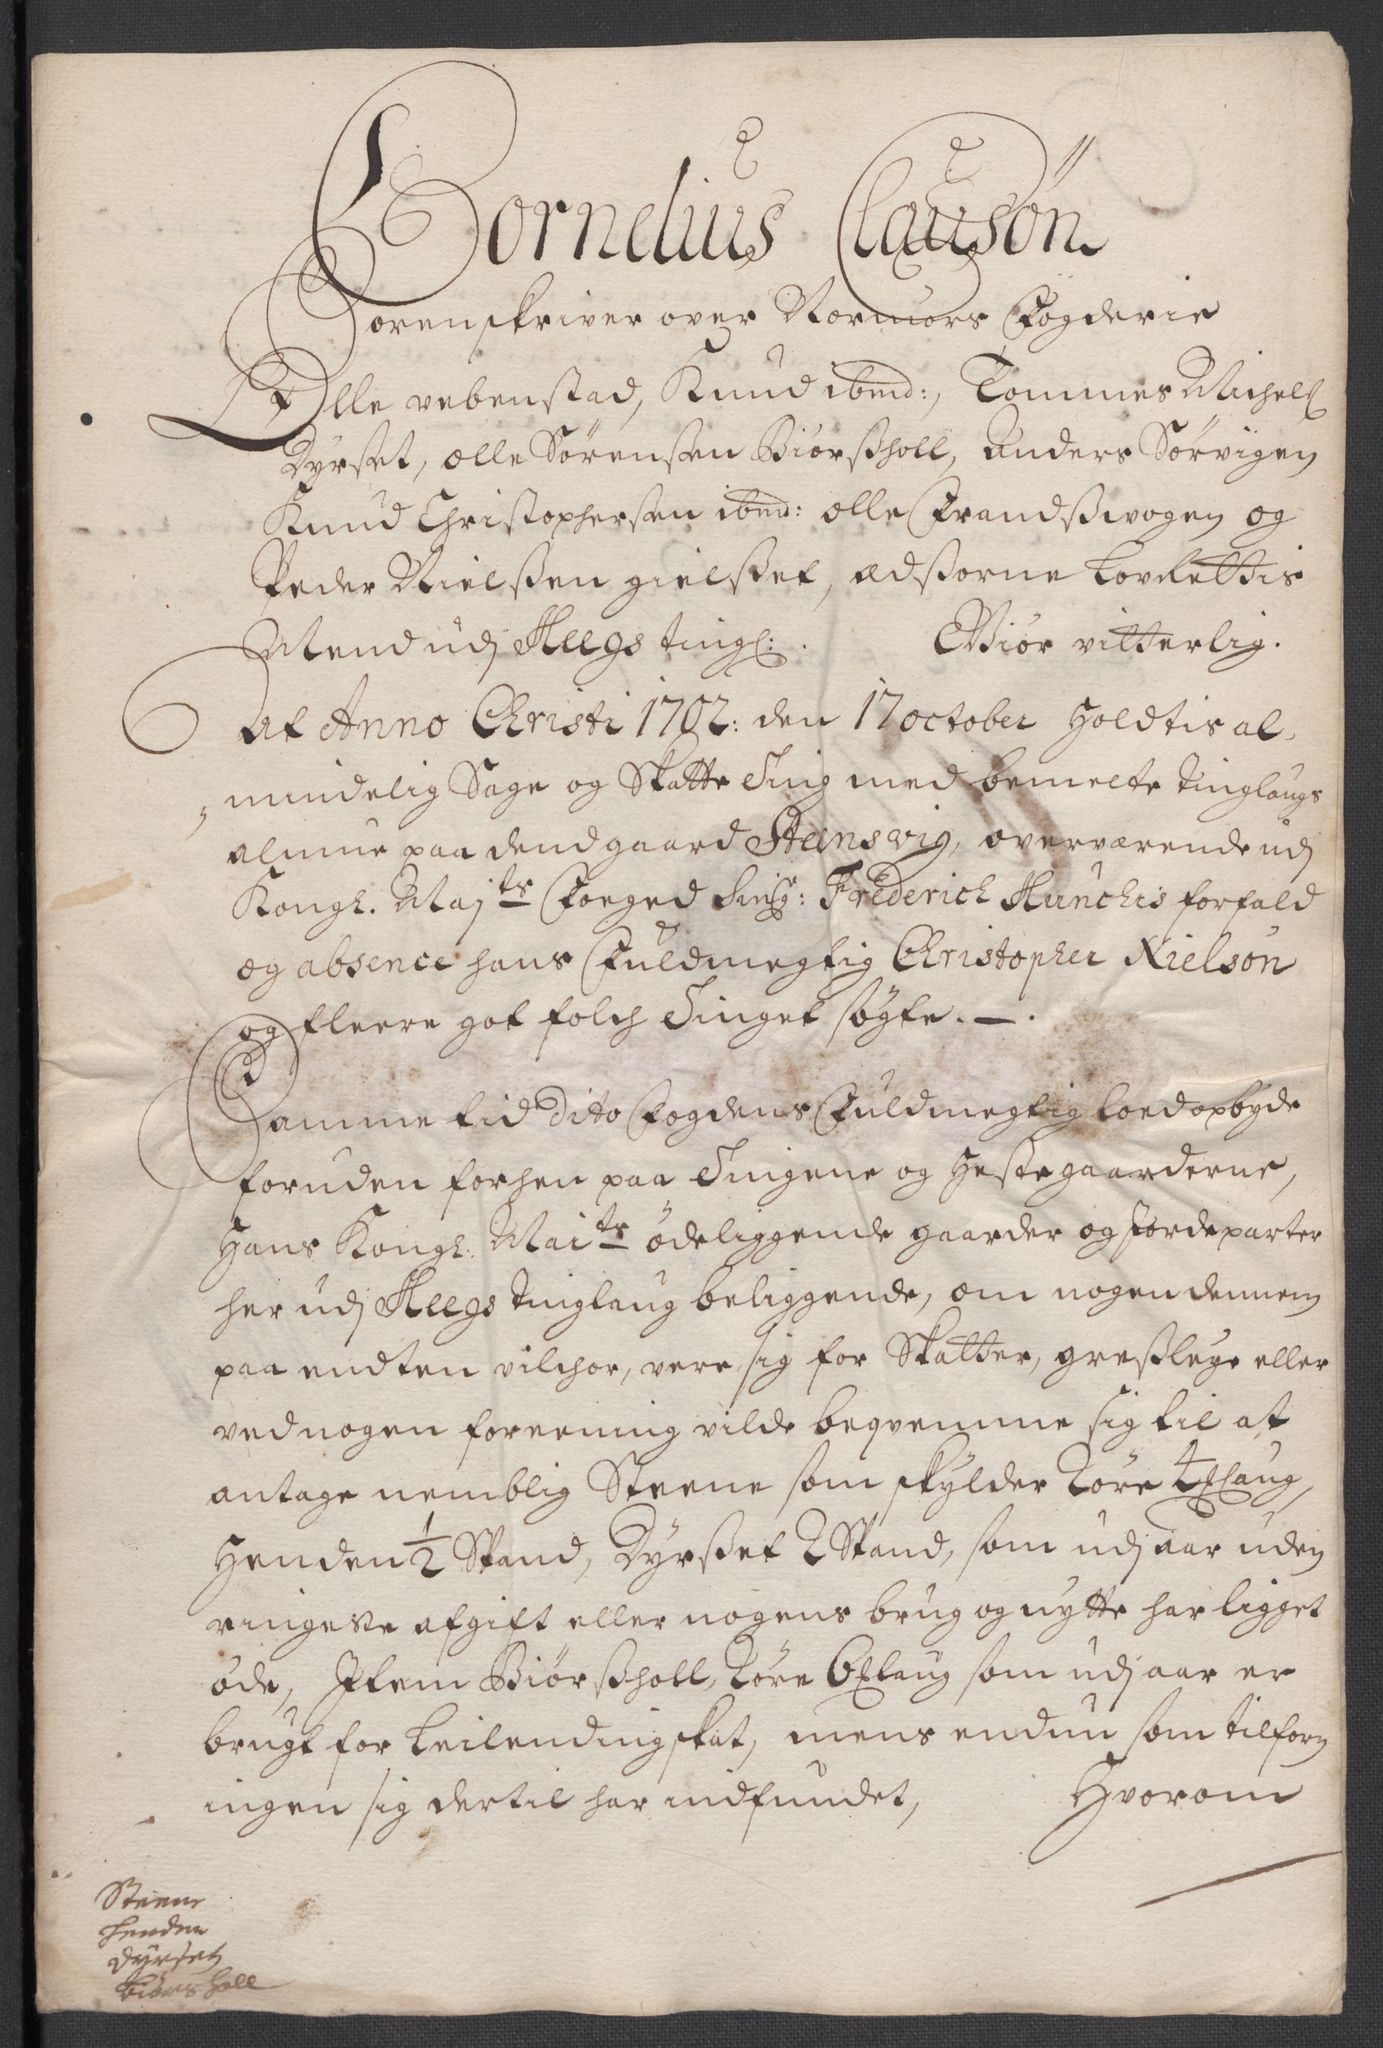 Cornelius Clausøn
Sorenskriver over Normørs Fogderie
Olle vebenstad, Knud ibmd:, Tommes Michels
Dyrset, olle Sørensen Biørsholl, Anders Sørvigen
Knud Christophersen ibmd: olle Frandsswogen og
Peder Nielssen gielsset, Edsorne Lovrettis
Mend udj Heegs tingl: Giør vitterlig.
At Anno Christi 1702: den 17 october Holdtis al,
mindelig Sage og Skatte Ting med bemelte tinglaugs
almue paa dend gaard Steenswig, overværende udj
Kongl. Maj:ts Foeged Sing:r Frederich Hunchis forfald
og absence hans Fuldmegtig Christopher Nielsøn
og fleere got folch Tinget søgte. — .
Samme tid dito Fogdens Fuldmegtig loed opbyde
foruden forhen paa Tingene og Hestegaarderne,
Hans Kongl: Mai:ts ødeliggende gaarder og Jordeparter
her udj Heegs tinglaug beliggende, om nogen dennem
paa endten vilchor, vere sig for Skatter, gressleye eller
ved nogen foreening vilde beqvemme sig til at
antage nemblig Steene som skylder Aore 4 laug,
Henden 1/2 Spand, Dyrsset 2 Spand, som udj aar uden
ringeste afgift eller nogens brug og nytte har ligget
øde, Item Biørssholl, Aore laug som udj aar er
brugt for Leilendingskat, mens endnu som tilforn
ingen sig dertil har indfundet, Hvorom
Steene
Henden
Dyrset
Biørsholl